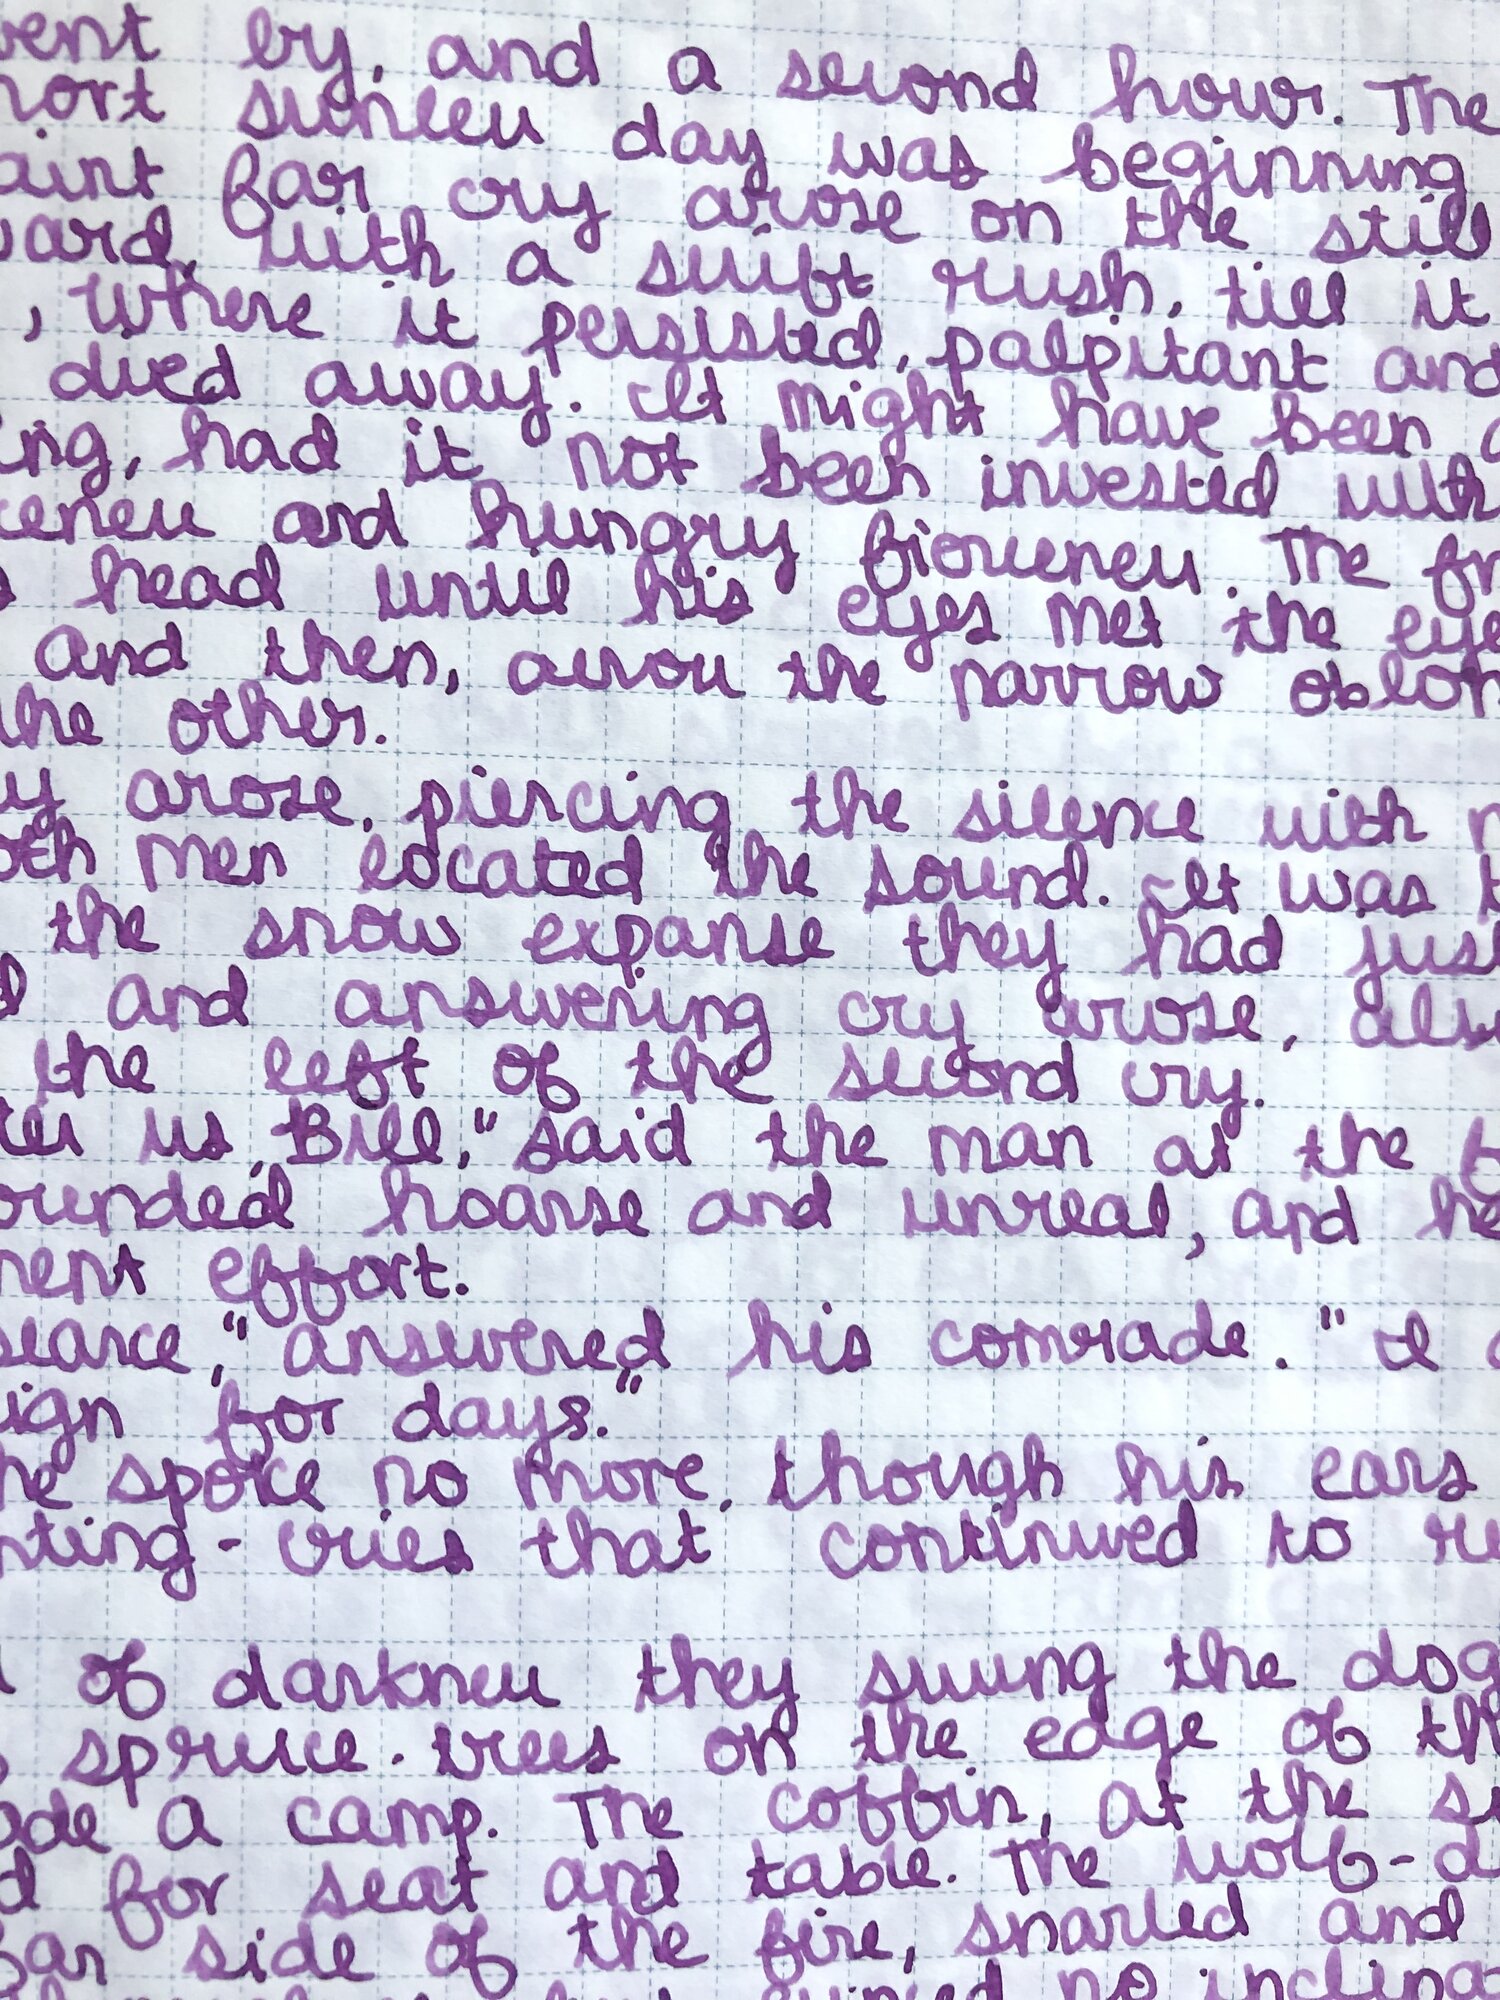 vent by, and a second hour. The
hort sunless day was beginning
aint far cry arose on the still
ward, with a swift rush, till it
, where it persisted, palpitant and
died away. It might have been a
ing, had it not been invested with
ierceness and hungry fierceness. The fr
s head until his eyes met the eye
and then, across the narrow oblon
the other.
ry arose, piercing the silence with n
oth men located the sound. It was t
the snow expanse they had just
d and answering cry arose, also
the left of the second cry.
ter us, Bill," said the man at the f
ounded hoarse and unreal, and he
rent effort.
scarce," answered his comrade. "I
ign for days."
he spoke no more, though his ears
nting-cries that continued to ri
of darkness they swung the dog
spruce-trees on the edge of th
ade a camp. The coffin, at the si
d for seat and table. The wolf-d
far side of the fire, snarled and
no inclina